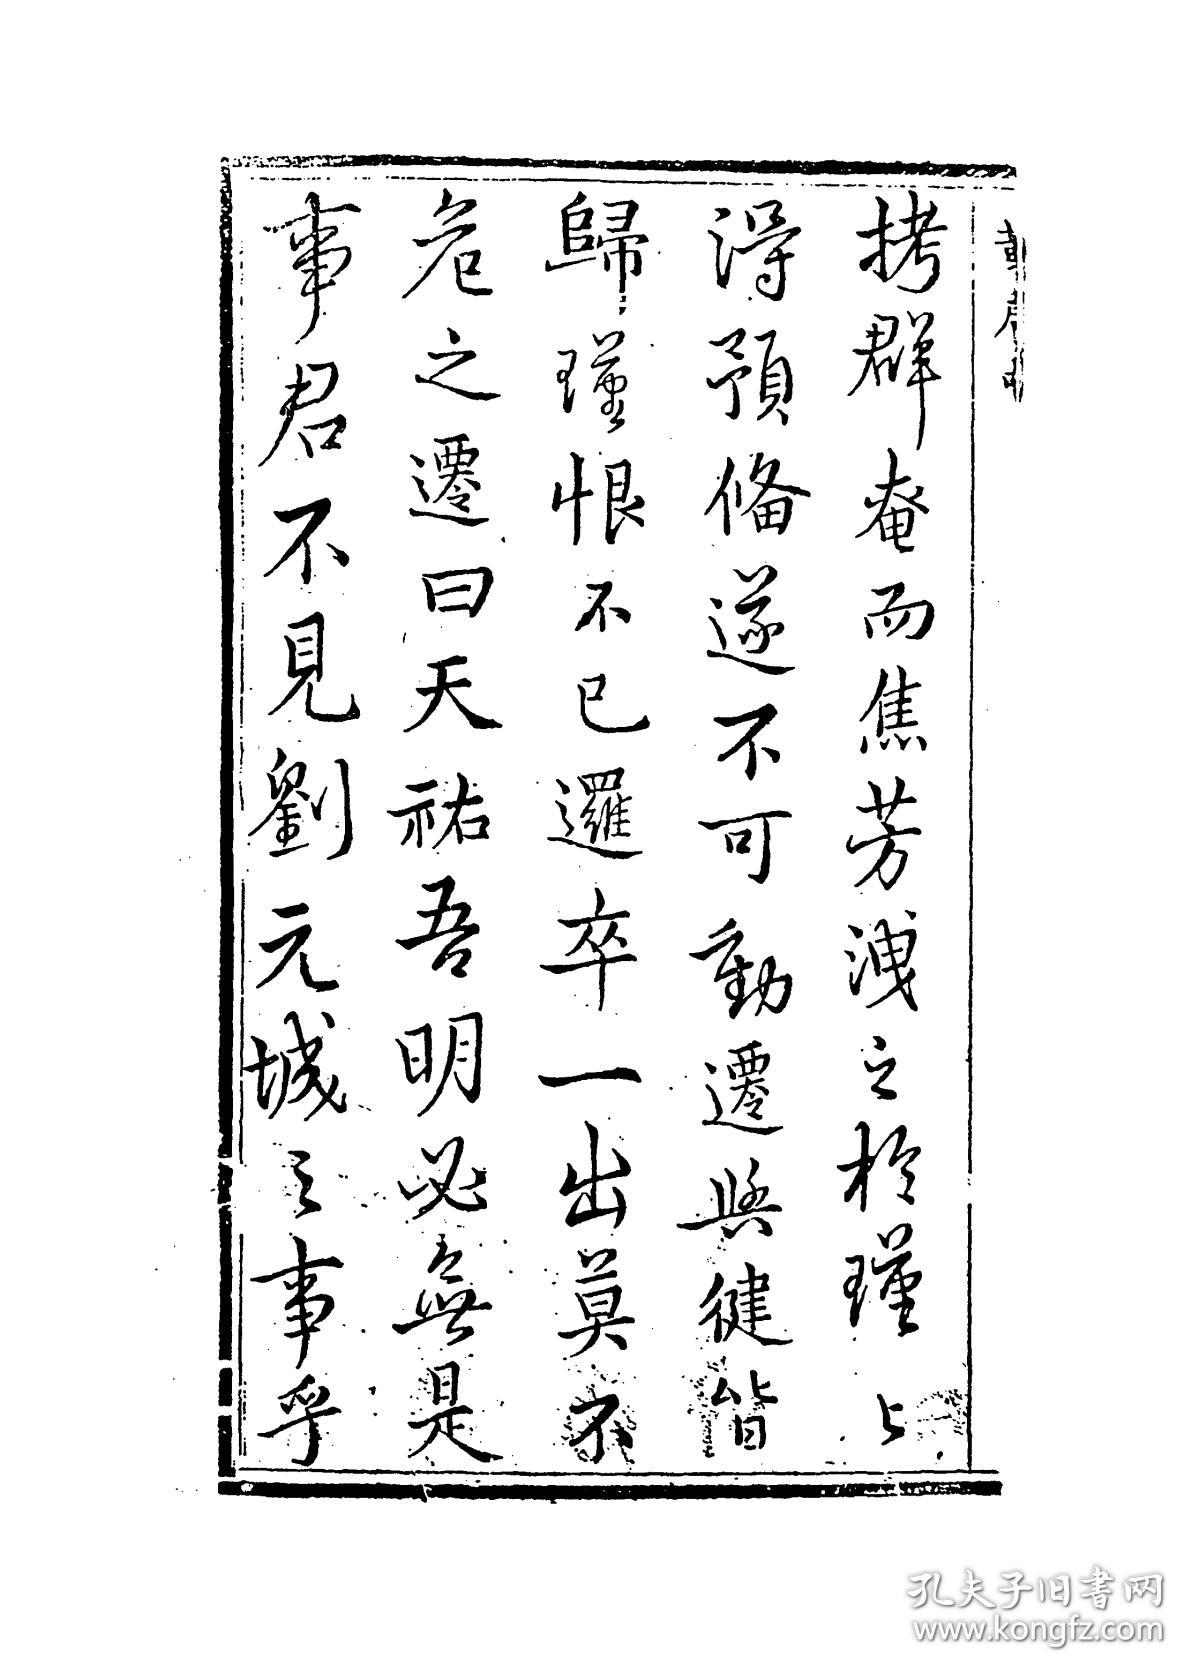 拷群奄而焦芳洩之於瑾上
得預備遂不可動遷與健皆
歸瑾恨不已邏卒一出莫不
危之遷曰天祐吾明必無是
事君不見劉元城之事乎
孔夫子旧书网
www.kongfz.com